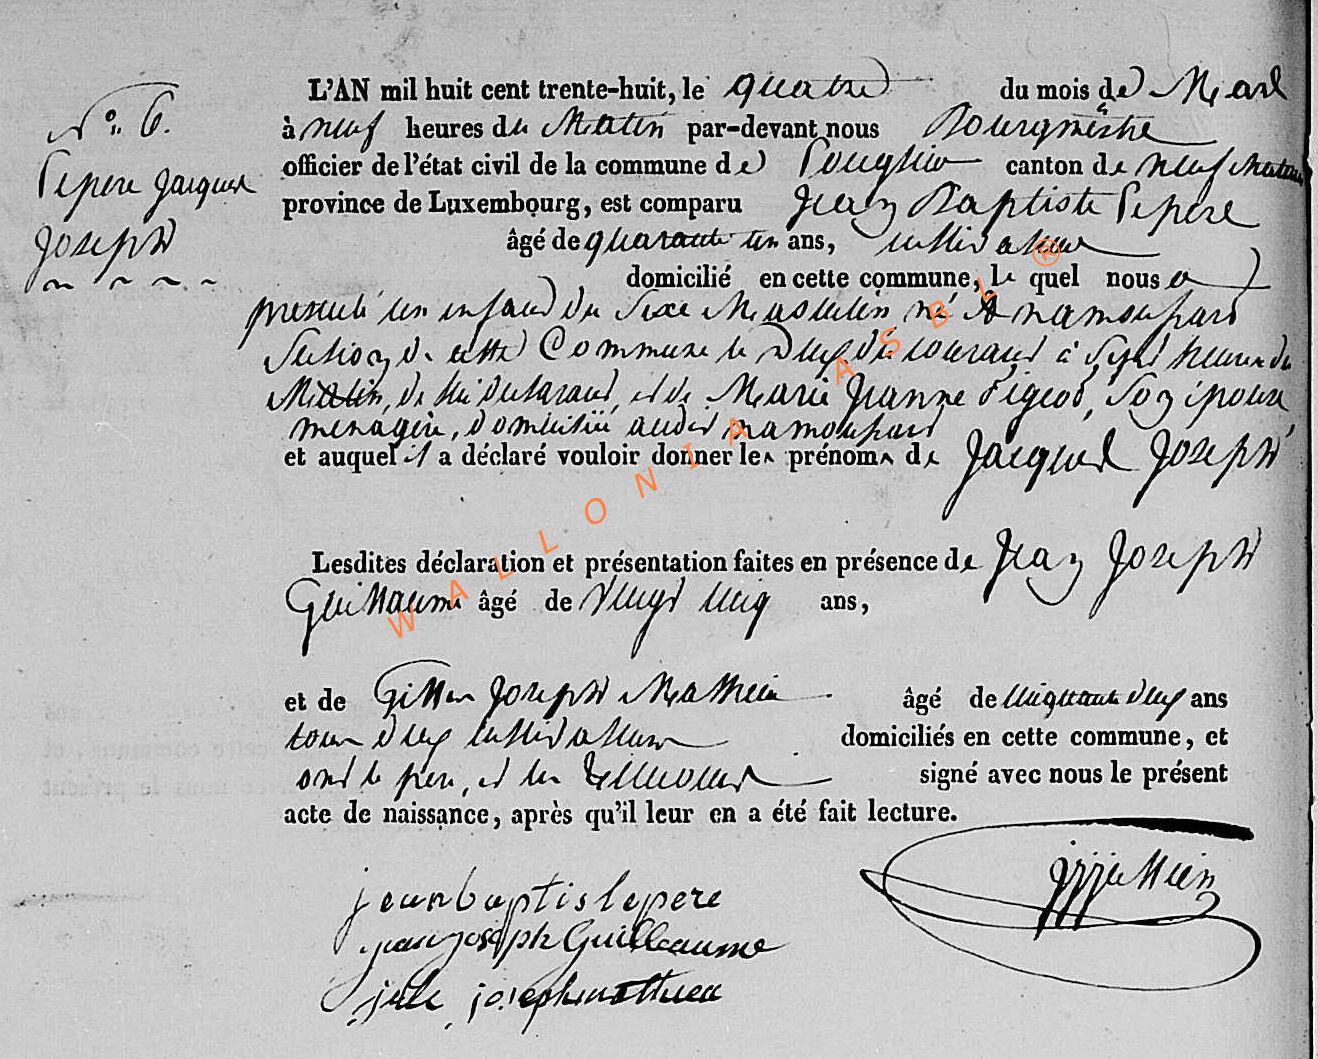 N° 6.
Lepere Jacques
Joseph
L'AN mil huit cent trente-huit, le quatre du mois de Mars
à neuf heures du Matin par-devant nous Bourgmestre
officier de l'état civil de la commune de canton de neufchateau
province de Luxembourg, est comparu Jean Baptiste Lepere
âgé de quarante un ans, cultivateur
domicilié en cette commune, le quel nous a
presenté un enfant du Sexe Masculin né A namoussart
Section de cette Commune le Deux du courant à Sept heures du
Matin, de lui Déclarant, et de Marie Jeanne Pigeot, Son épouse
menagère, Domiciliée audit namoussart
et auquel il a déclaré vouloir donner les prénoms de Jacques Joseph
Lesdites déclaration et présentation faites en présence de Jean Joseph
Guillaume âgé de Vingt cinq ans,
et de Joseph Mathieu âgé de cinquante Deux ans
tous Deux cultivateurs domiciliés en cette commune, et
ont le père, et les témoins signé avec nous le présent
acte de naissance, après qu'il leur en a été fait lecture.
jean baptis lepere
jean joseph Guillaume
joseph mathieu
WALLONIA ASBL ®